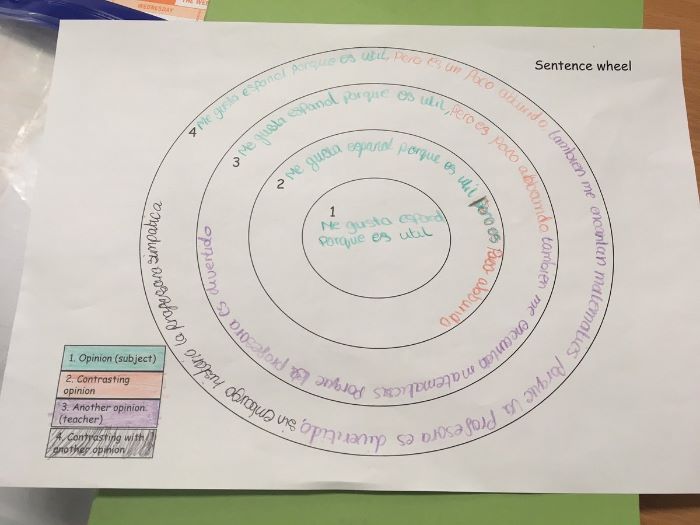 THE WED
WEDNESDAY
Sentence wheel
4 Me gusta espanol porque es util, pero es un poco aburrido, tambien me encantan matematics porque la profesora es divertido, sin embargo historia la profesora simpatica
3 Me gusta espanol porque es util, pero es poco abburrido tambien me encantan matematicas porque la profesora es divertido
2 Me gusta espanol porque es util pero es poco abburrido
1
Me gusta espanol
porque es util
1. Opinion (subject)
2. Contrasting
opinion
3. Another opinion
(teacher)
4. Contrasting with
another opinion